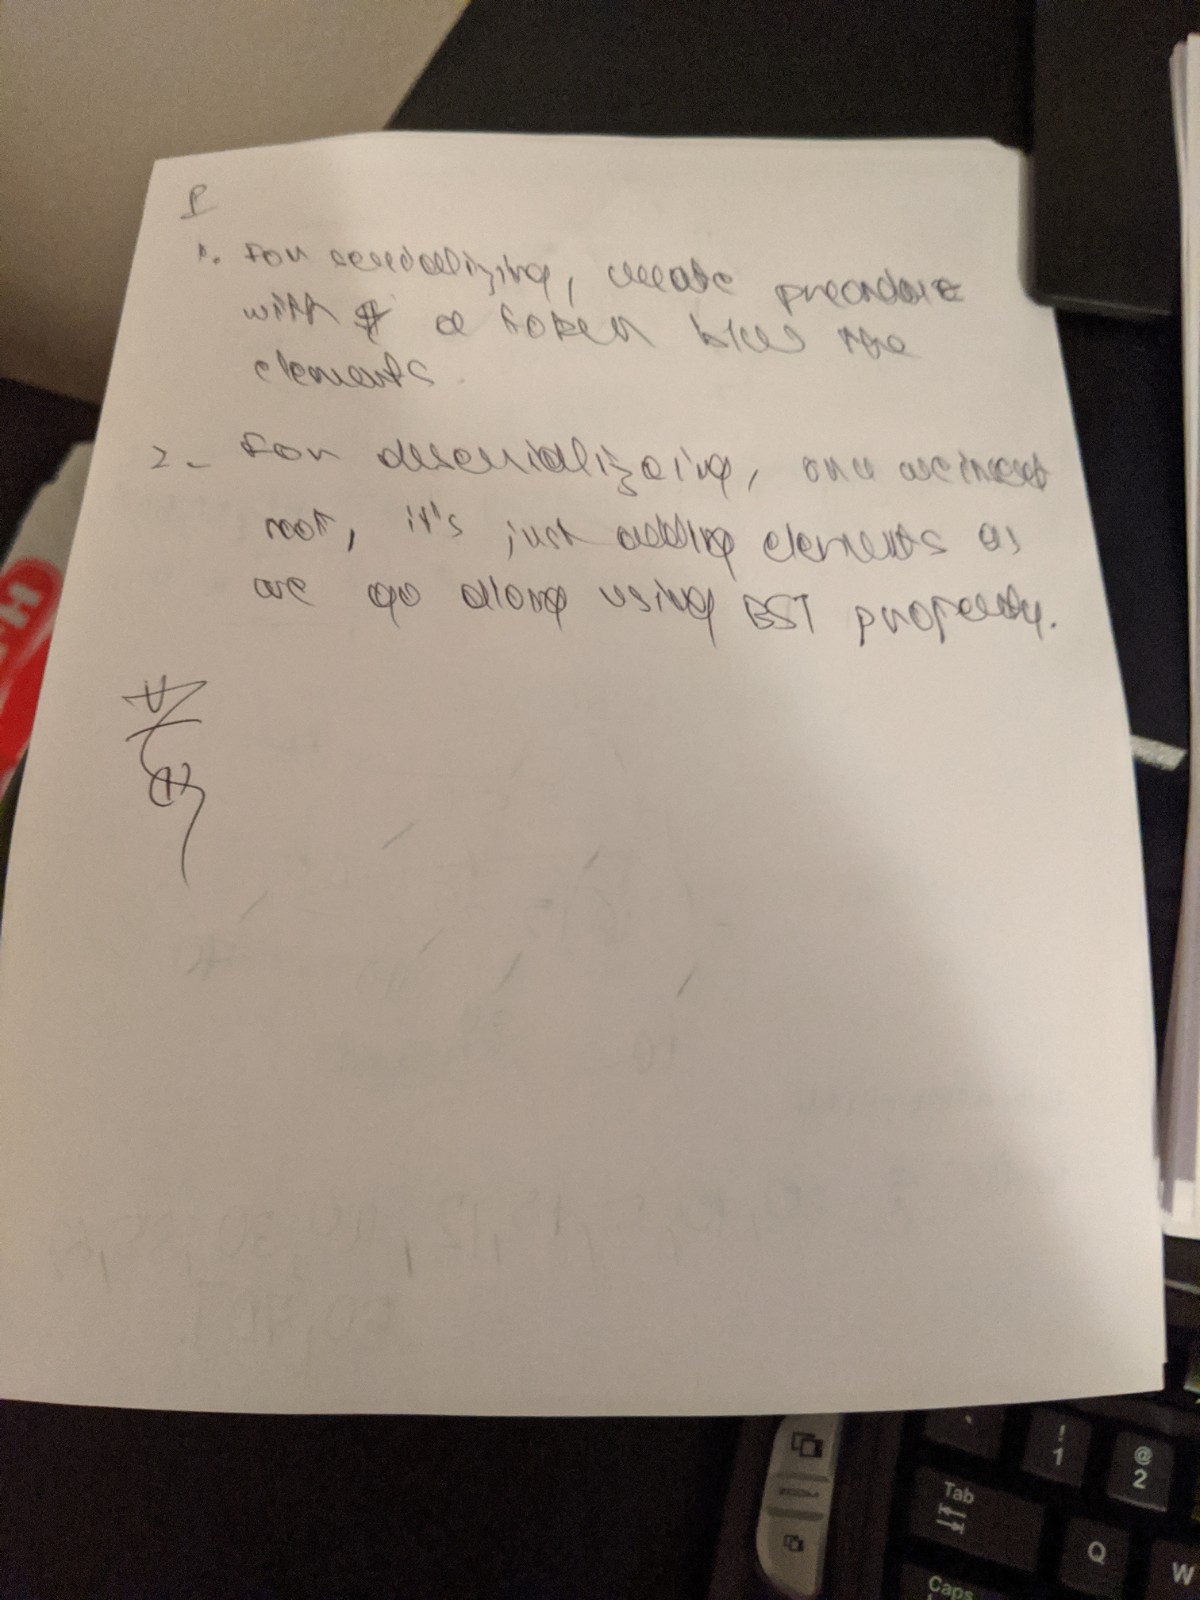 1. For serializing, create preorder
with a token b/w the
elements.
2. For deserializing, once we insert
root, it's just adding elements as
we go along using BST property.
!
1
@
2
Tab
Q
W
Caps
ZOOM